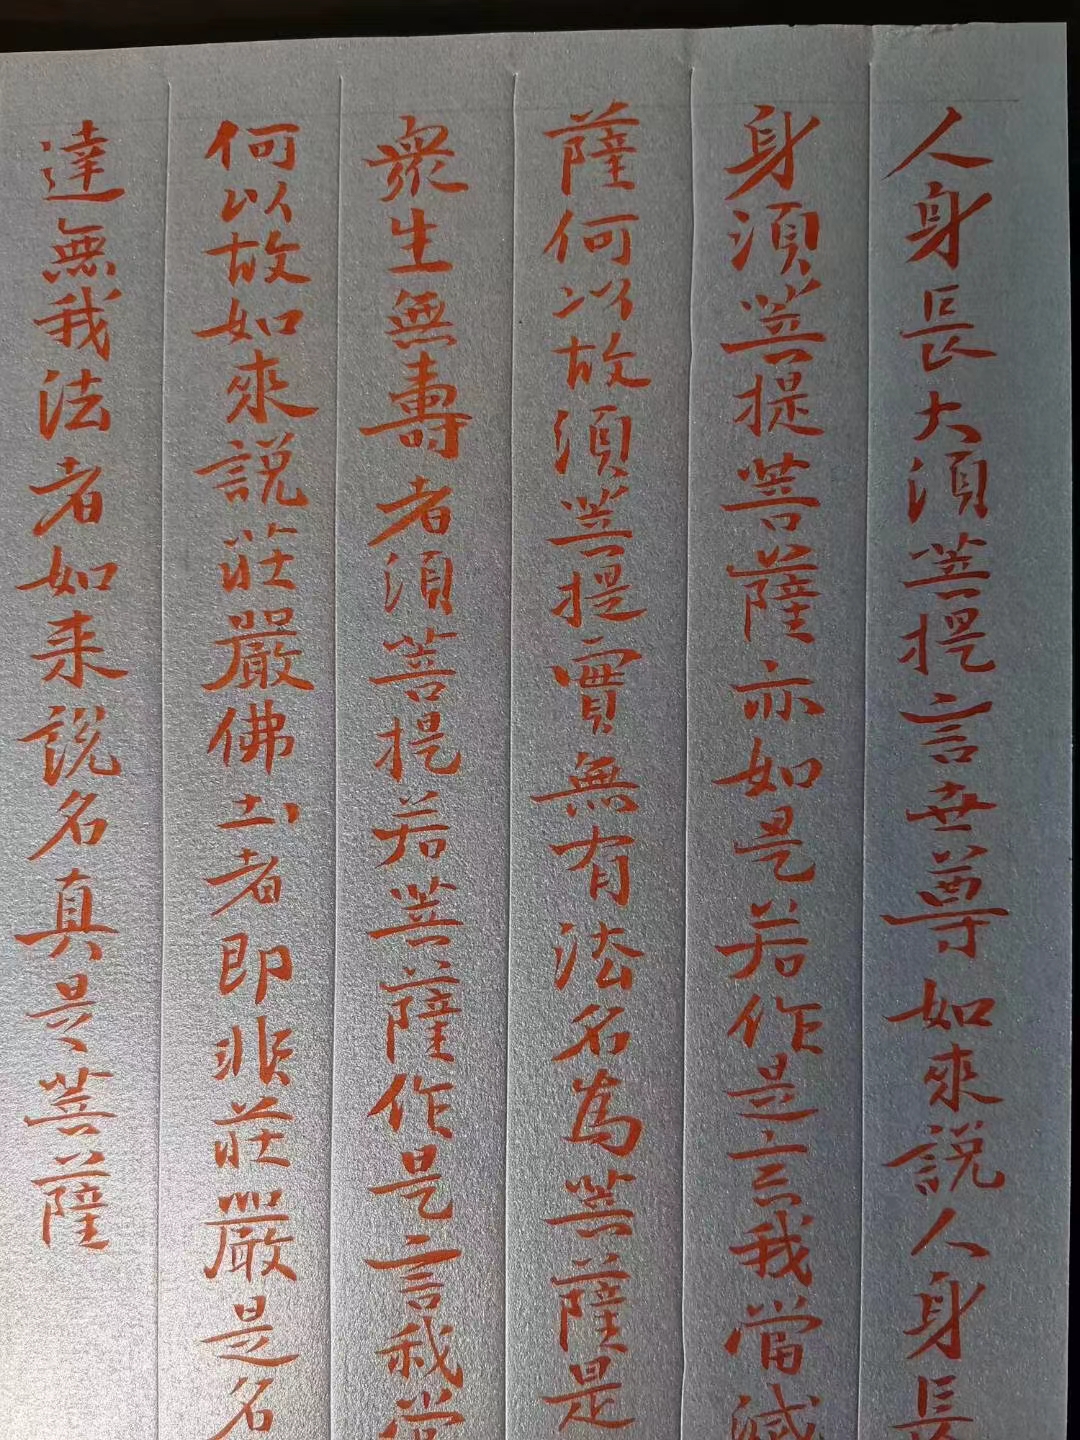 人身長大須菩提言世尊如來說人身長
身須菩提菩薩亦如是若作是言我當滅
薩何以故須菩提實無有法名為菩薩是
衆生無壽者須菩提若菩薩作是言我當
何以故如來說莊嚴佛土者即非莊嚴是名
達無我法者如来說名真是菩薩